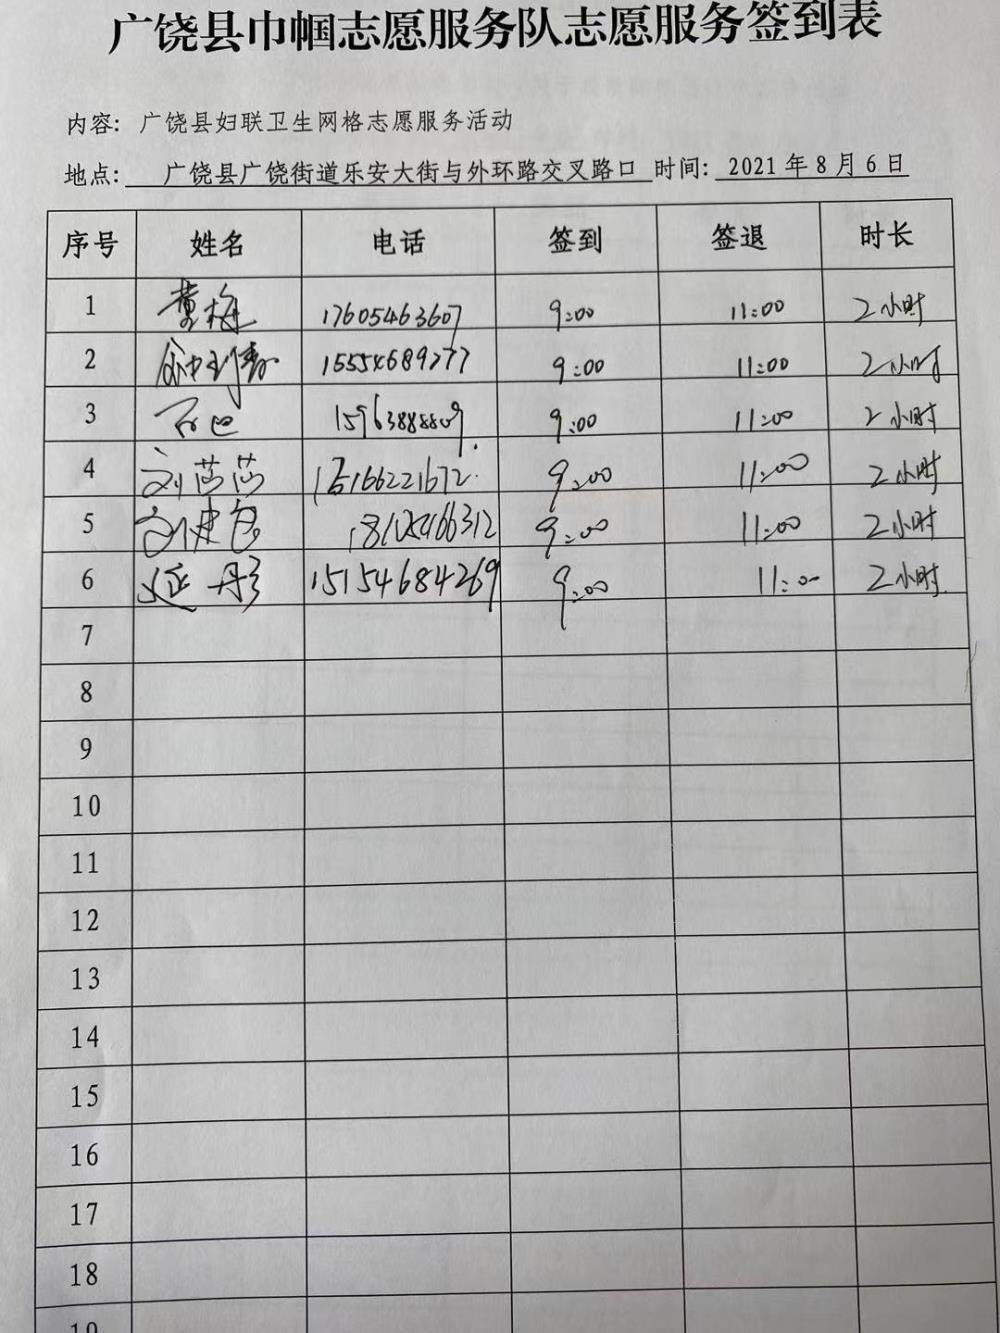 广饶县巾帼志愿服务队志愿服务签到表
内容: 广饶县妇联卫生网格志愿服务活动
地点: 广饶县广饶街道乐安大街与外环路交叉路口 时间: 2021年8月6日
序号 姓名 电话 签到 签退 时长
1 董梅 17605463607 9:00 11:00 2小时
2 15554689777 9:00 11:00 2小时
3 15963888809 9:00 11:00 2小时
4 刘莎莎 15166221672 9:00 11:00 2小时
5 18105466312 9:00 11:00 2小时
6 延丹彤 15154684269 9:00 11:00 2小时
7
8
9
10
11
12
13
14
15
16
17
18
19